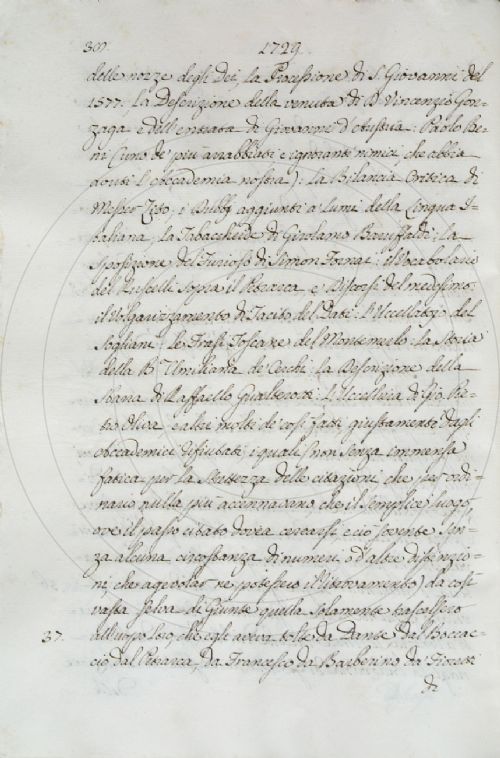 1729.
delle nozze degli Dei, la Processione di S. Giovanni del
1577. La Descrizione della venuta di D. Vincenzio Gon-
zaga e dell'entrata di Giovanni d'Austria: Paolo Be-
ni (uno de' più arrabbiati e ignoranti nimici, che abbia
avuti l'Accademia nostra): la Bilancia Critica di
Messer Tito: i Dubbj aggiunti a' lumi della Lingua I-
taliana, la Tabaccheide di Girolamo Baruffaldi: la
Sposizione del Furioso di Simon Fornai: il Vocabolario
del Ruscelli sopra il Petrarca, e Discorsi del medesimo:
il Volgarizzamento di Tacito del Dati: l'Uccellatoj del
Sogliani: le Frasi Toscane del Montemerlo: la Storia
della B. Umiliana de' Cerchi: la Descrizione della
di Raffaello Gualterotti: l'Uccelleria di Gio. Pie-
tro Oliva e altri molti de' così fatti giustamente dagli
Accademici rifiutati; i quali (non senza immensa
fatica per la stuttezza delle citazioni, che per ordi-
nario nulla più accennavano che il semplice luogo
ove il passo citato dovea cercarsi, e ciò sovente sen-
za alcuna circostanza di numeri, o d'altre distinzio-
ni, che agevolar ne potessero il ritrovamento) da così
vasta selva di Giunte quella solamente trascelsero
37. all'uopo loro, che egli aveva tolte da Dante dal Boccac-
cio dal Petrarca, da Francesco da Barberino da' Fioretti
di